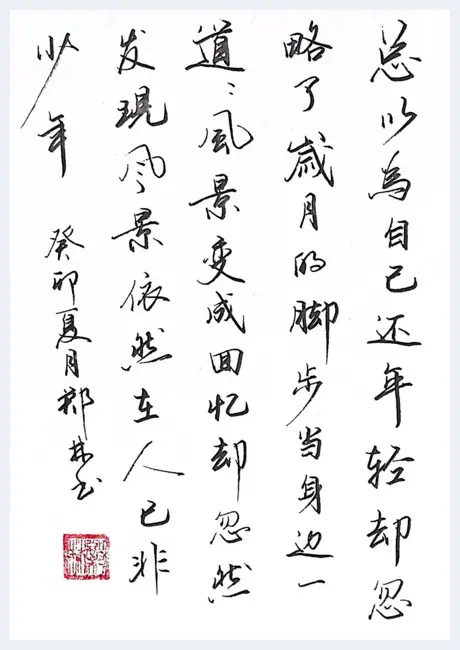 总以為自己还年轻却忽
略了歲月的脚步当身边一
道〻風景变成回忆却忽然
发現风景依然在人已非
少年
癸卯夏月鄭林书